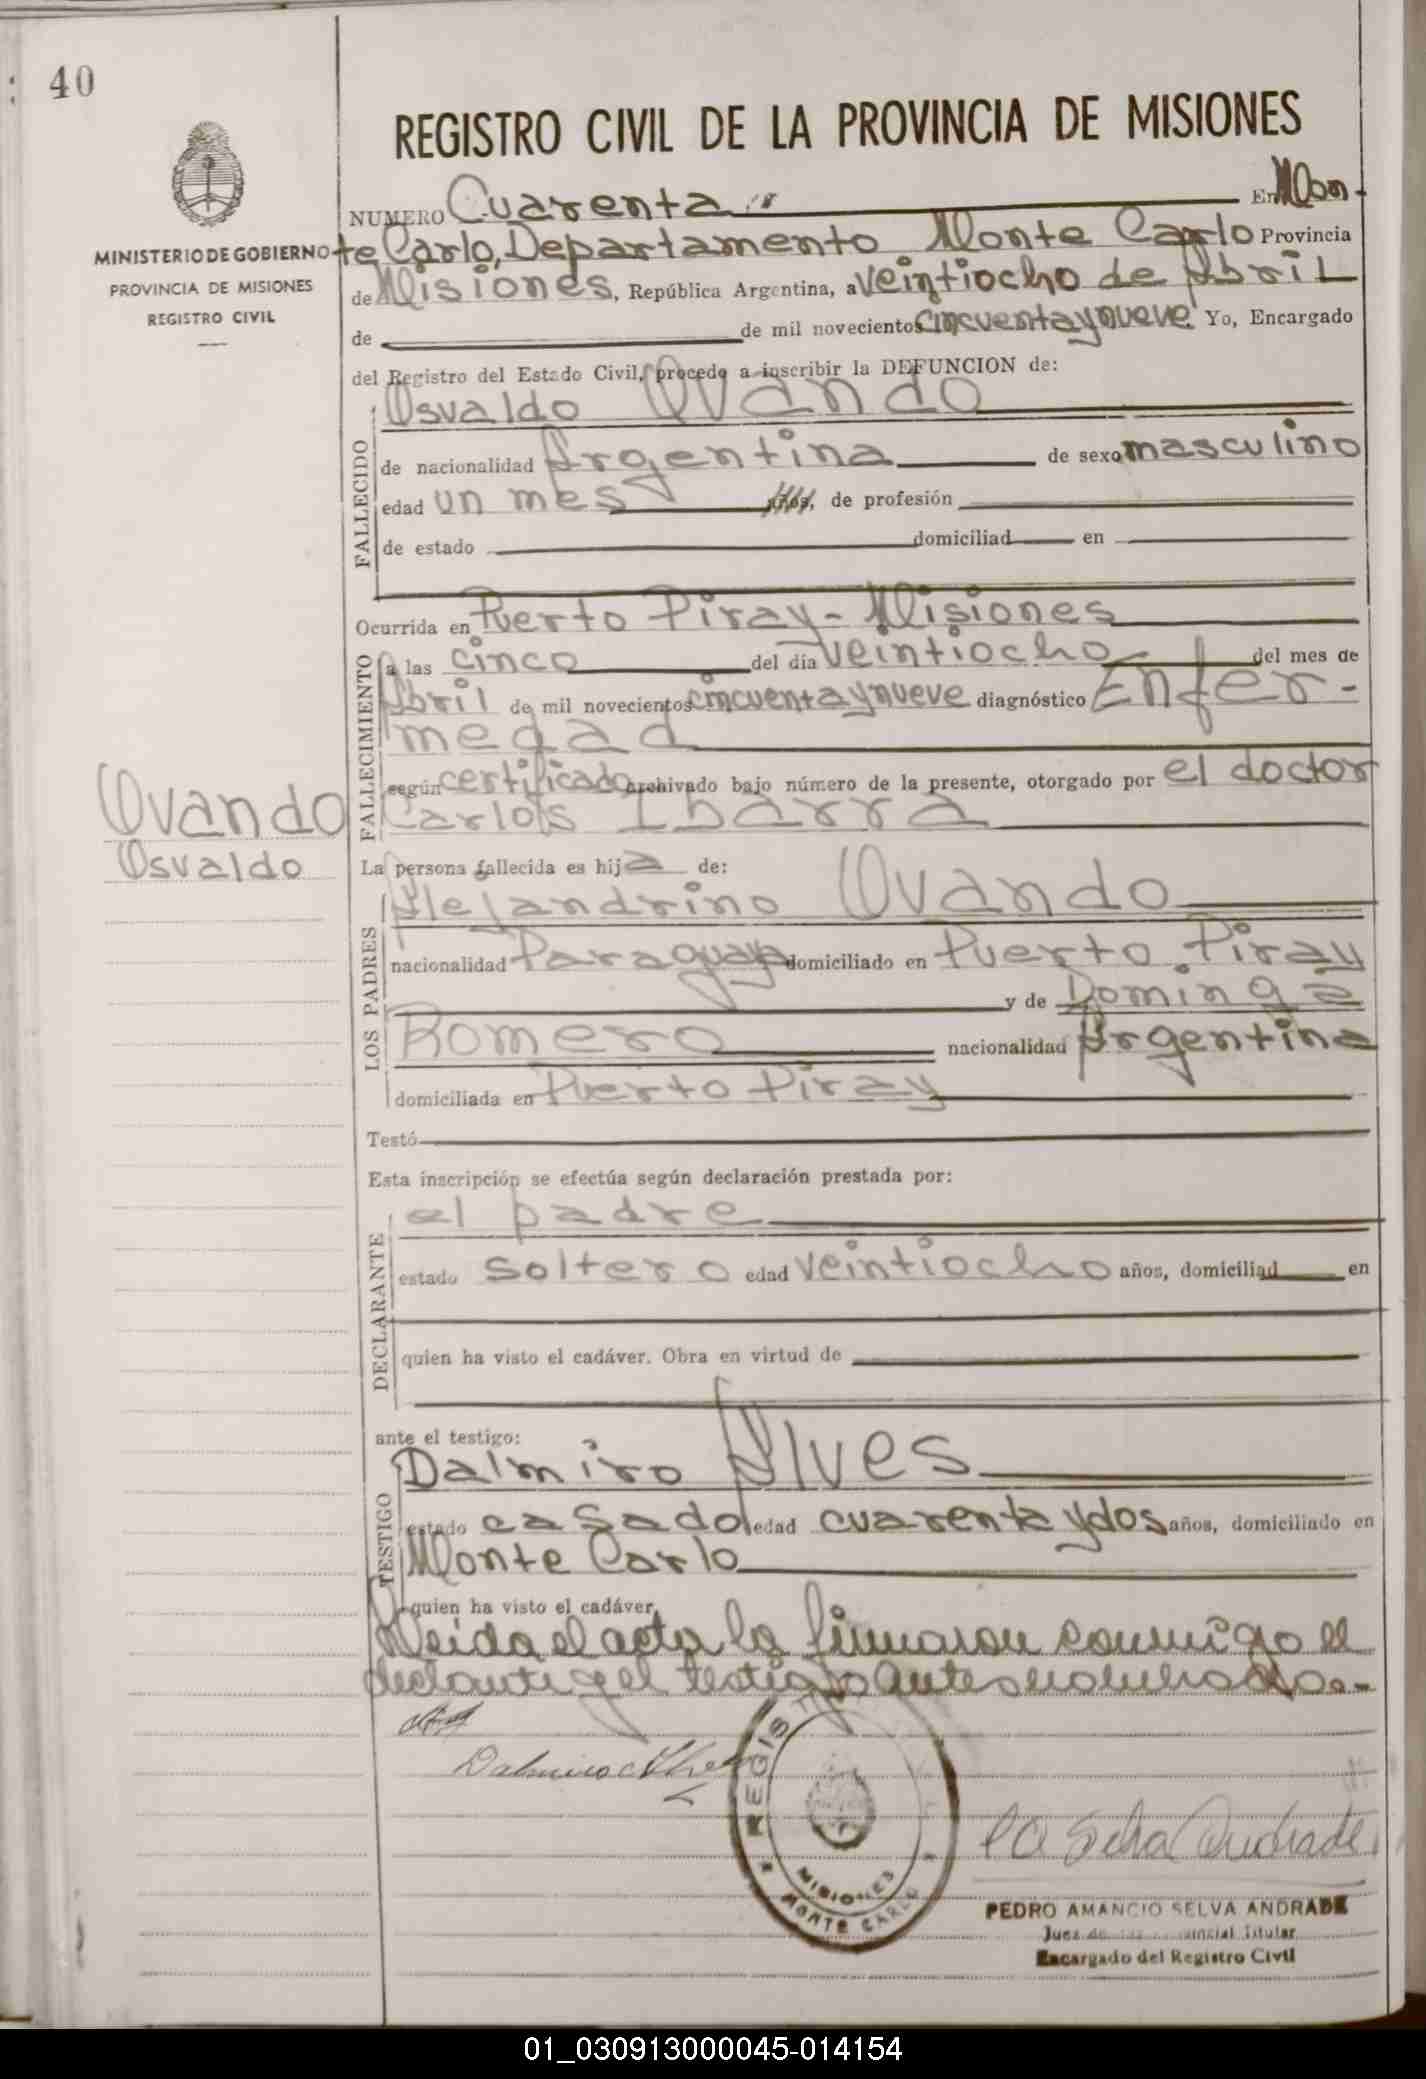 40
MINISTERIO DE GOBIERNO
PROVINCIA DE MISIONES
REGISTRO CIVIL
REGISTRO CIVIL DE LA PROVINCIA DE MISIONES
NUMERO Cuarenta En Mon-
te Carlo, Departamento Monte Carlo Provincia
de Misiones, República Argentina, a veintiocho de Abril
de de mil novecientos cincuenta y nueve. Yo, Encargado
del Registro del Estado Civil, procedo a inscribir la DEFUNCION de:
Osvaldo Ovando
FALLECIDO
de nacionalidad Argentina de sexo masculino
edad un mes años, de profesión
de estado domiciliad en
Ocurrida en Puerto Piray - Misiones
FALLECIMIENTO
a las cinco del día veintiocho del mes de
Abril de mil novecientos cincuenta y nueve diagnóstico Enfer-
medad
según certificado archivado bajo número de la presente, otorgado por el doctor
Carlos Ibarra
Ovando
Osvaldo
La persona fallecida es hija de:
Alejandrino Ovando
LOS PADRES
nacionalidad Paraguaya domiciliado en Puerto Piray
y de Dominga
Romero nacionalidad Argentina
domiciliada en Puerto Piray
Testó
Esta inscripción se efectúa según declaración prestada por:
el padre
DECLARANTE
estado soltero edad veintiocho años, domiciliad en
quien ha visto el cadáver. Obra en virtud de
ante el testigo:
Dalmiro Alves
TESTIGO
estado casado edad cuarenta y dos años, domiciliado en
Monte Carlo
quien ha visto el cadáver.
Leida el acta la firmaron conmigo el
declante y el testigo antes nombrado.-
Dalmiro Alves
REGISTRO
MISIONES
MONTE CARLO
P A Selva Andrade
PEDRO AMANCIO SELVA ANDRADE
Juez de Titular
Encargado del Registro Civil
01_030913000045-014154